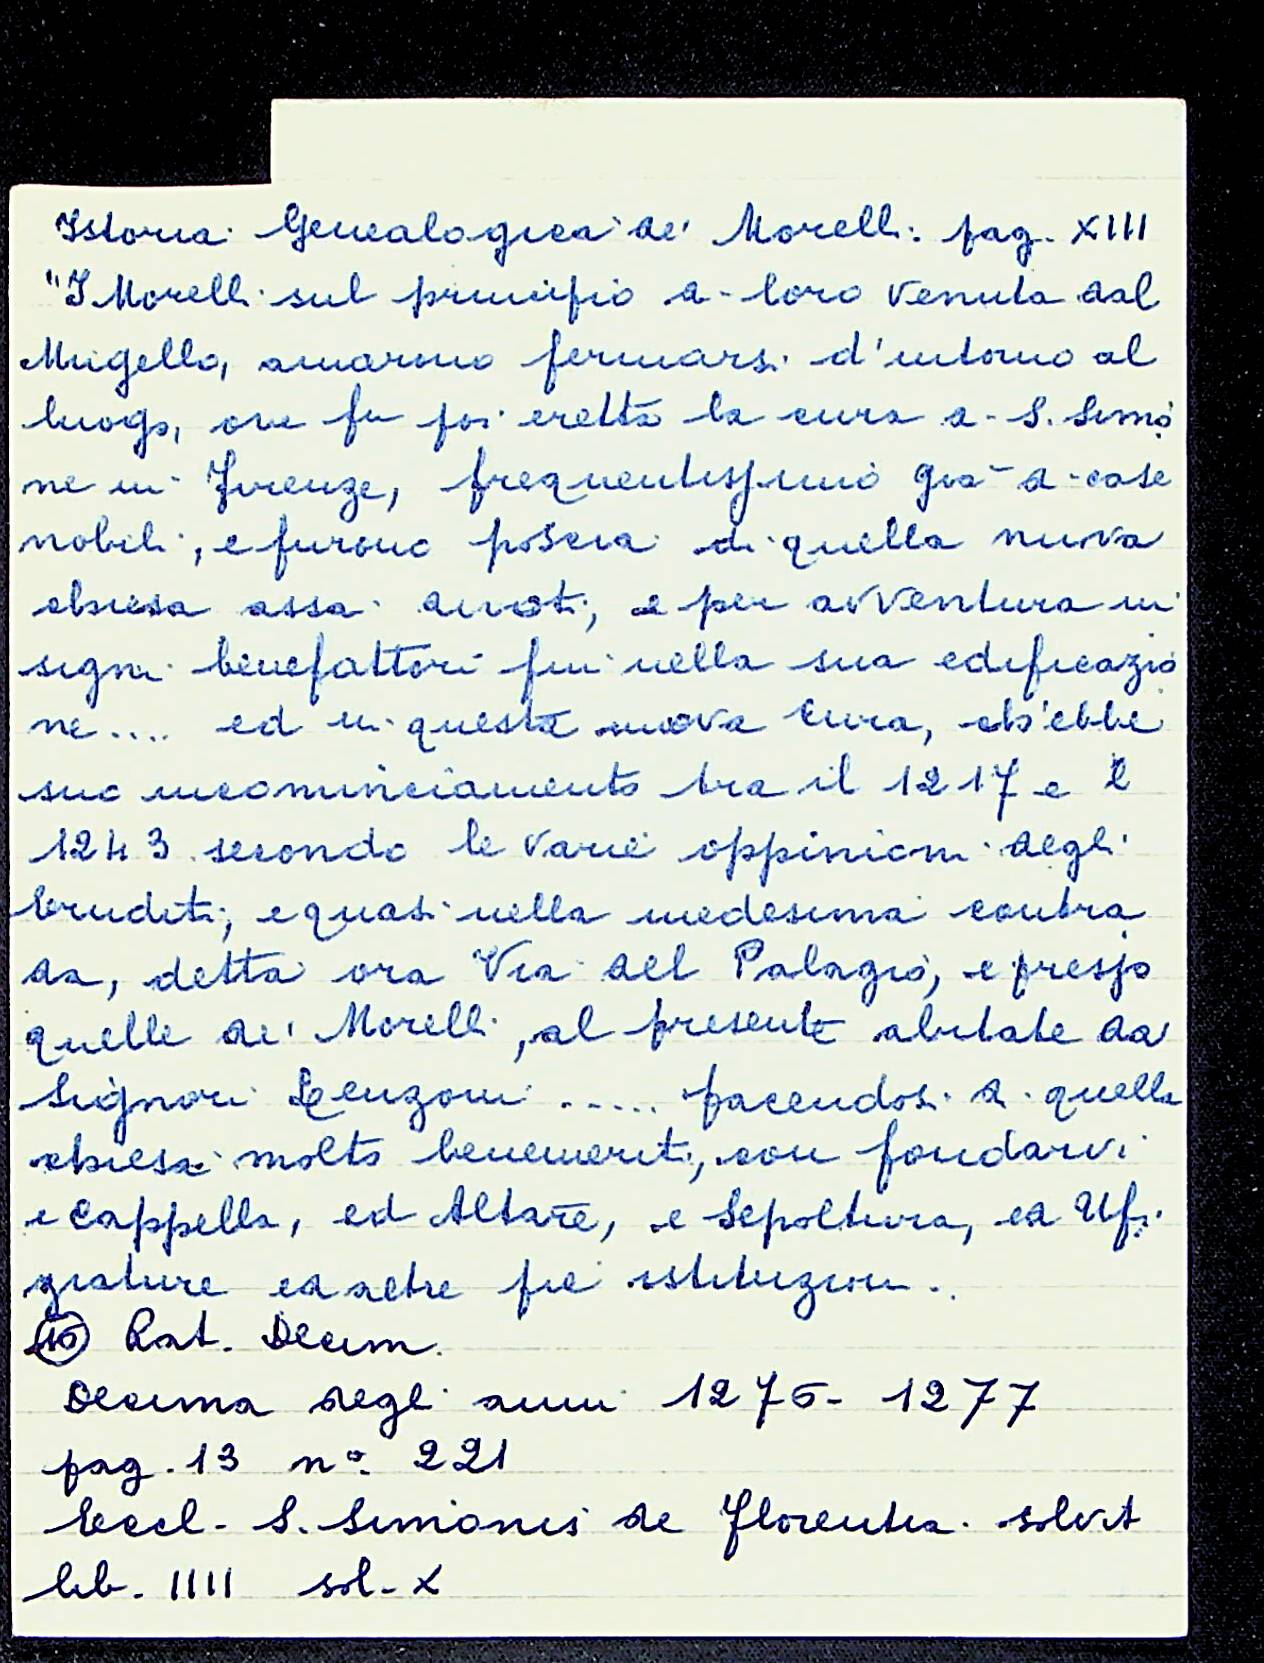 Istoria Genealogica de' Morelli. pag. XIII
"I Morelli sul principio di loro venuta dal
Mugello, amarono fermarsi d'intorno al
luogo, ove fu poi eretta la cura di S. Simo
ne in Firenze, frequentissimo già di case
nobili, e furono poscia di quella nuova
chiesa assai divoti, e per avventura in
signi benefattori fin nella sua edificazio
ne.... ed in questa nuova Cura, ch'ebbe
suo incominciamento tra il 1217 e il
1243 secondo le varie oppinioni degli
Eruditi, e quasi nella medesima contra
da, detta ora Via del Palagio, e presso
quelle de' Morelli, al presente abitate da
Signori Lenzoni ..... facendosi a quella
chiesa molto benemeriti, con fondarvi
e Cappella, ed Altare, e Sepoltura, ed Ufi
ziature ed altre pie istituzioni..
Rat. Decim.
Decima degli anni 1276-1277
pag. 13 nº. 221
Eccl. S. Simonis de Florentia solvit
lib. IIII sol. X